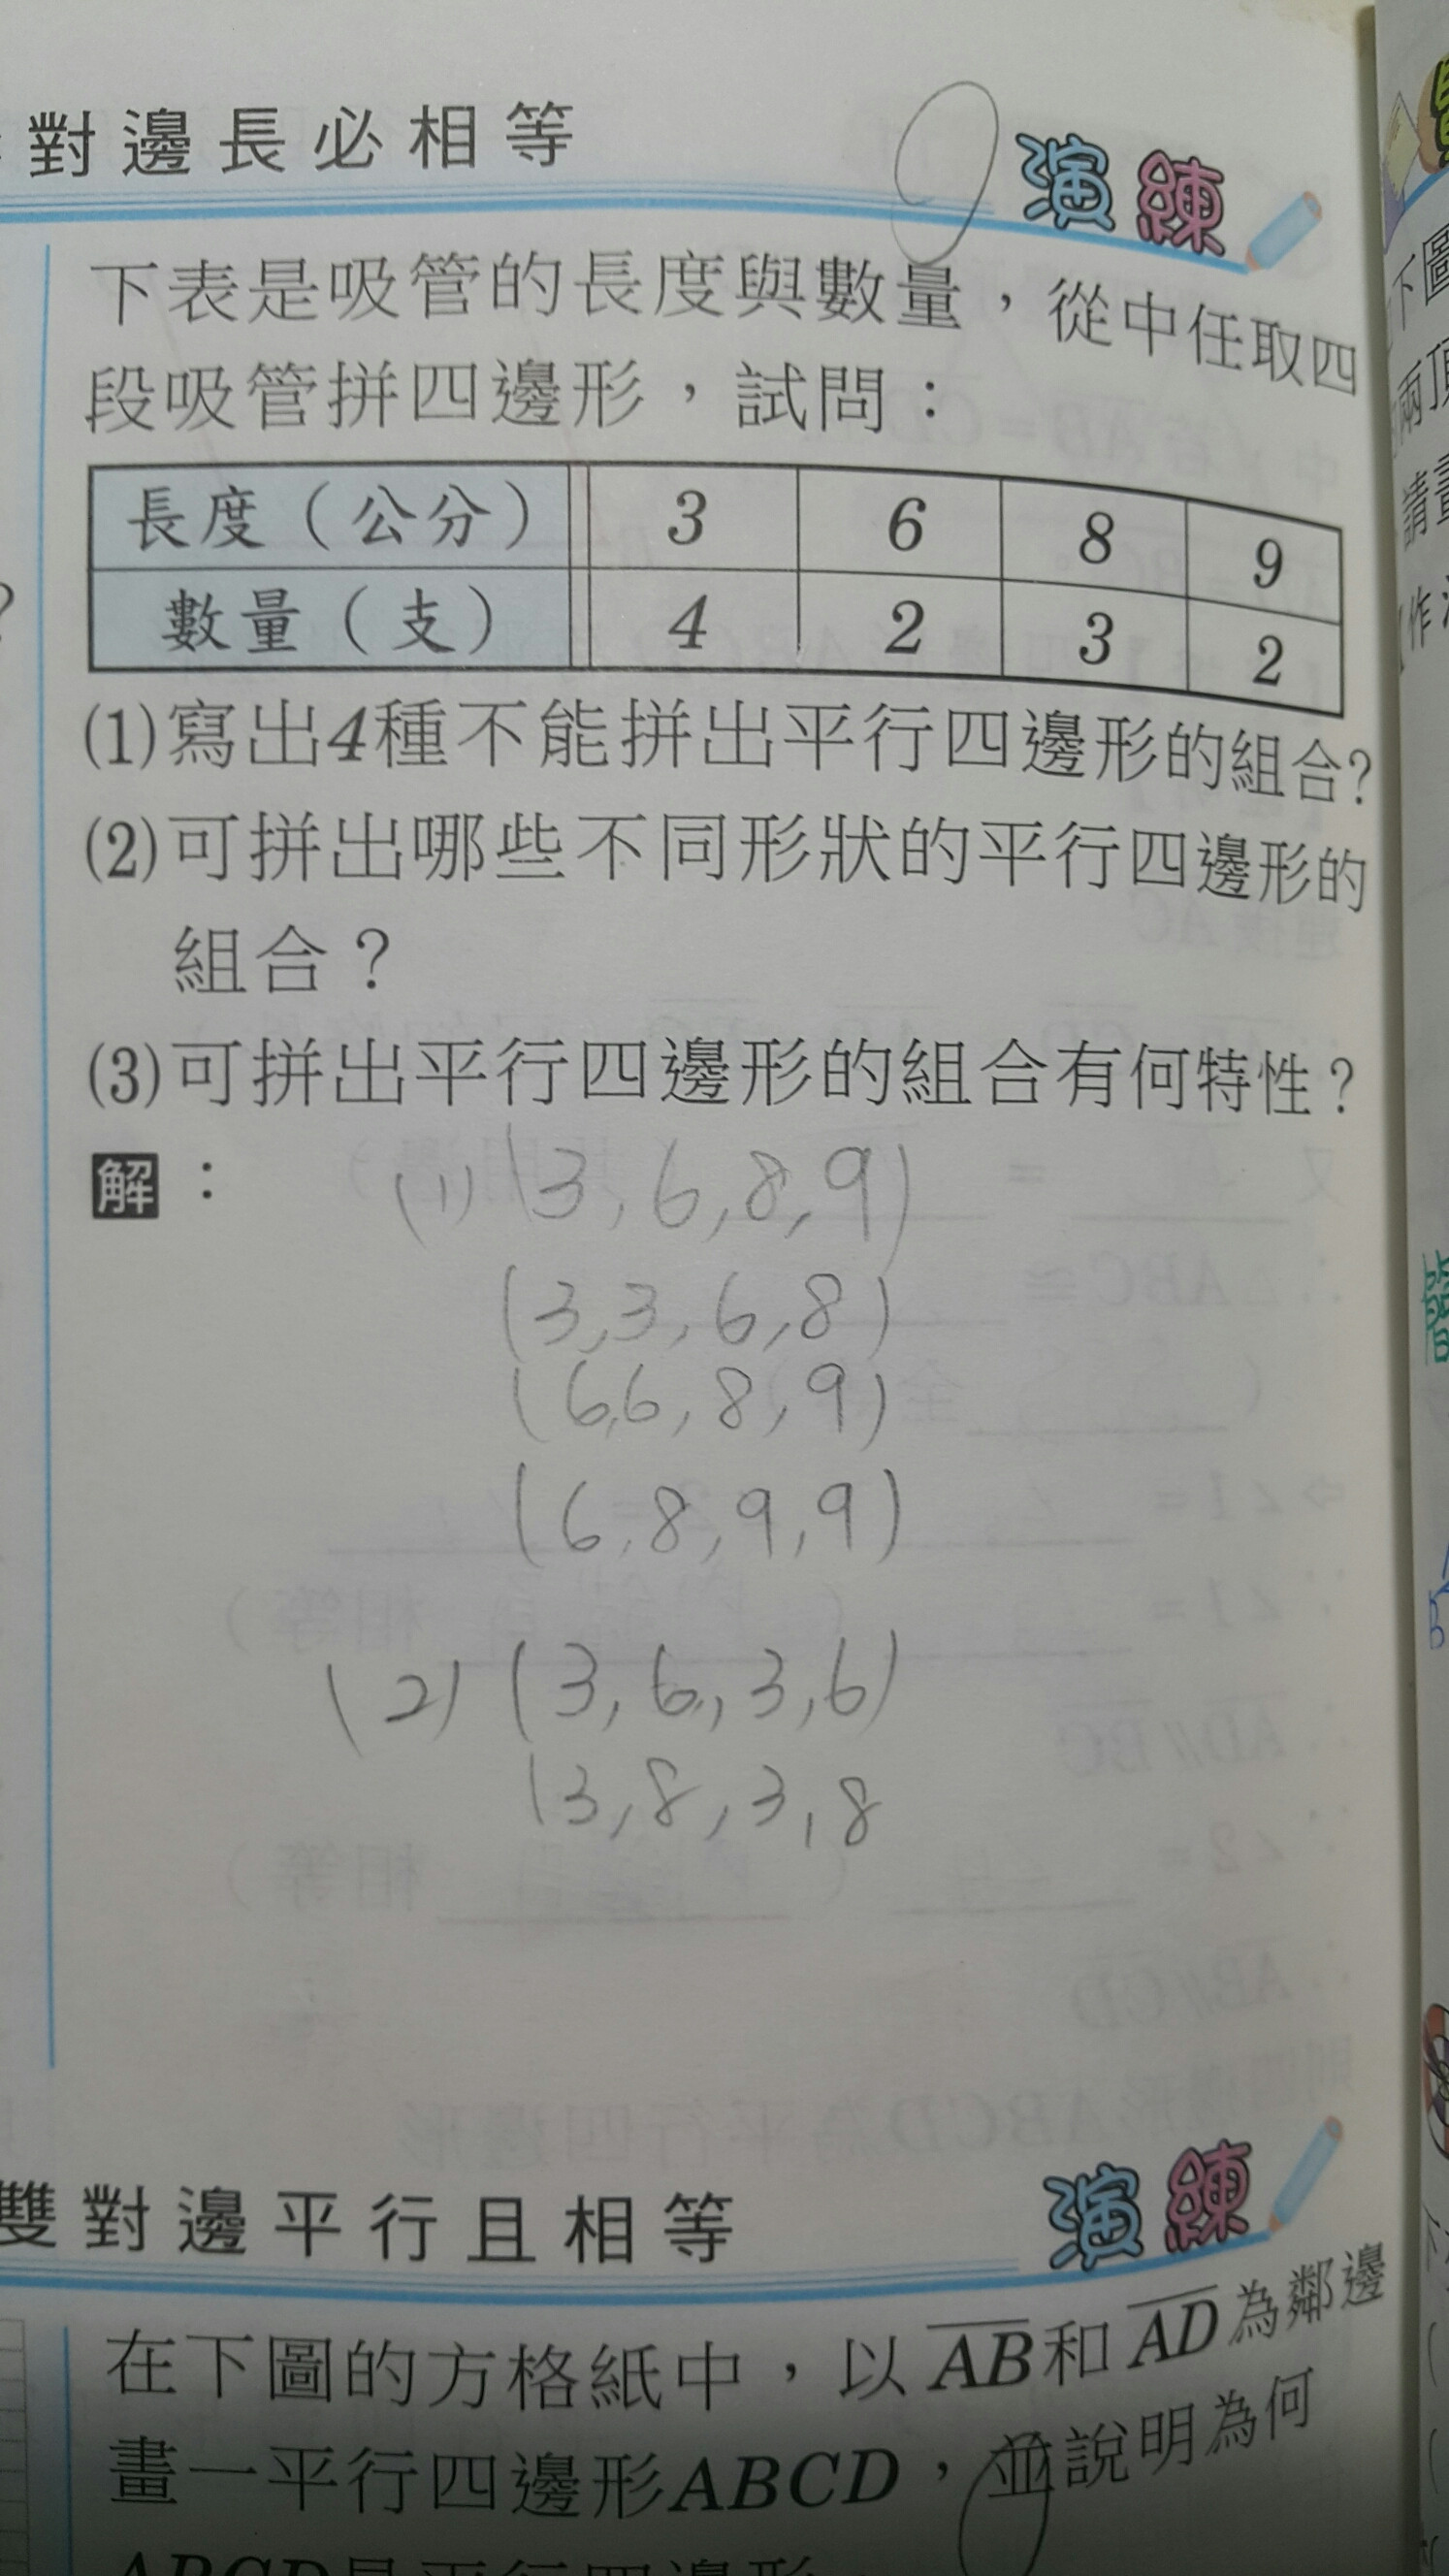 對邊長必相等
演練
下表是吸管的長度與數量，從中任取四
段吸管拼四邊形，試問：
長度（公分） 3 6 8 9
數量（支） 4 2 3 2
(1)寫出4種不能拼出平行四邊形的組合?
(2)可拼出哪些不同形狀的平行四邊形的
組合？
(3)可拼出平行四邊形的組合有何特性？
解：
(1) (3,6,8,9)
(3,3,6,8)
(6,6,8,9)
(6,8,9,9)
(2) (3,6,3,6)
(3,8,3,8
雙對邊平行且相等
演練
在下圖的方格紙中，以AB和AD為鄰邊
畫一平行四邊形ABCD，並說明為何